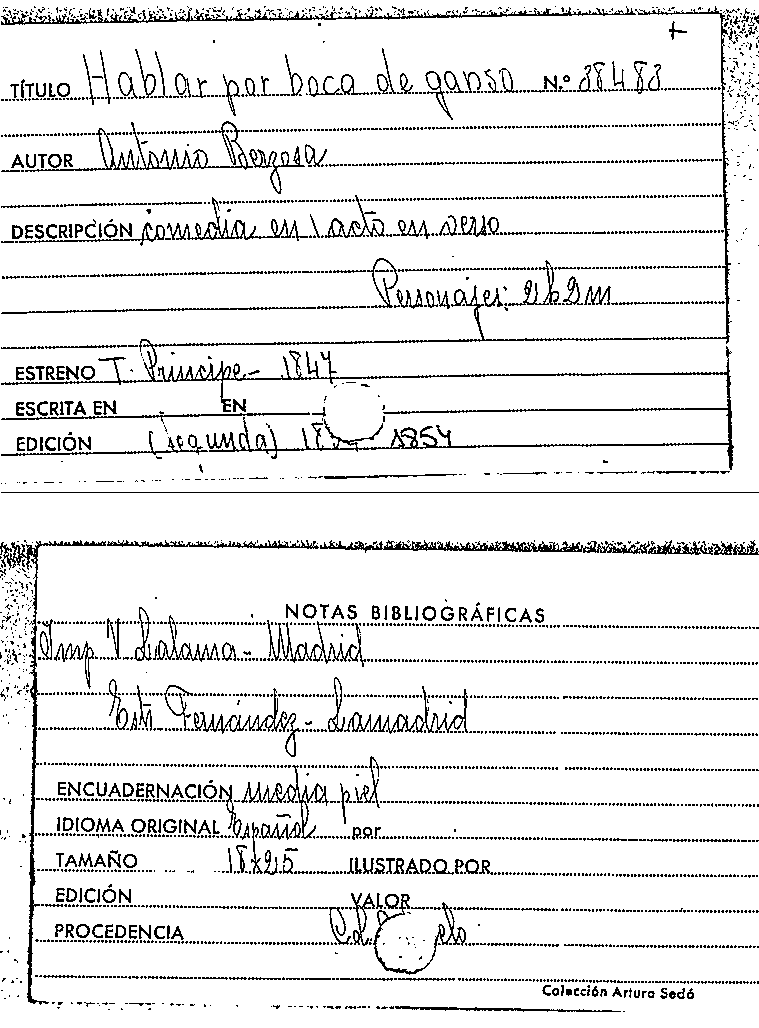 +
TÍTULO Hablar por boca de ganso N.º 38483
AUTOR Antonio Bergosa
DESCRIPCIÓN comedia en 1 acto en verso
Personajes: 2h 2m
ESTRENO T. Principe - 1847
ESCRITA EN EN
EDICIÓN (segunda) 1854
NOTAS BIBLIOGRÁFICAS
Imp V Lalama - Madrid
Estr Fernández - Lamadrid
ENCUADERNACIÓN media piel
IDIOMA ORIGINAL Español por
TAMAÑO 18x25 ILUSTRADO POR
EDICIÓN VALOR
PROCEDENCIA
Colección Arturo Sedó